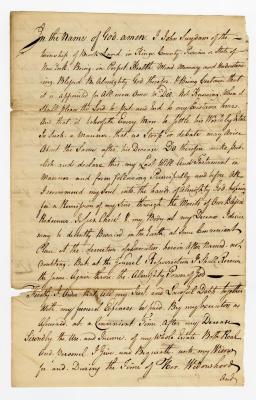 In the Name of God amen. I John Suydam of the
township of Bushwick in Kings County Province & State of
New York. Being in Perfect Health Mind Memory and Understan
ding Blessed Be Almighty God therefore. & Being Certain that
it is appointed for All men Once to Die. Not Knowing when it
Shall Please the Lord to put and End to my Existence here
And that it behoveth Every Man to Settle his World by Estate
In Such a Manner, that no Strife or Debate may Arise
About the Same after his Decease Do therefore make Pub
lish and declare this my Last Will And Testament in
Manner and form following Principally and before All
I recommend my Soul into the hands of Almighty God hoping
for a Remission of my Sins through the Merits of Our Blessed
Redeemer Jesus Christ & my Body at my Decease I desire
may be decently Buried in the Earth at Some Convenient
Place at the Discretion of my Executors herein After Named not
Doubting But at the General Resurrection I Shall Receive
the Same Again thro the Almighty Power of God
Firstly I Order that all my Just and Lawful Debts together
With my funeral Expences be paid By my Executors as
Aforesaid at a Convenient Time after my Decease
Secondly the Use and Income of my Whole Estate Both Real
And Personal I Give and Bequeath unto my Widow
for and During the Time of Her Widowhood
And